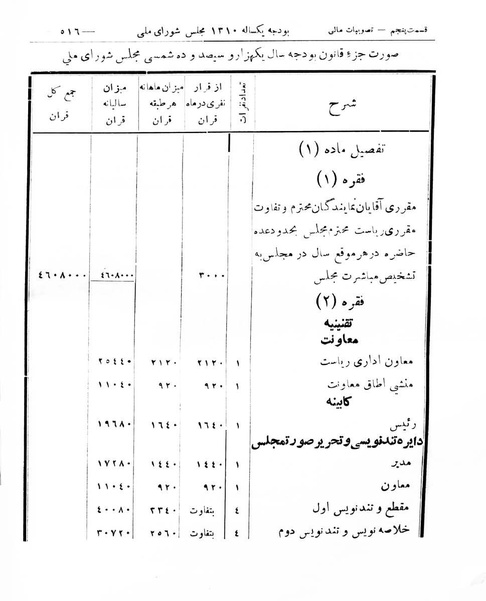 قسمت پنجم — تصویبات مالی بودجه یکساله ۱۳۱۰ مجلس شورای ملی ۵۱۶—
صورت جزء قانون بودجه سال یکهزار و سیصد و ده شمسی مجلس شورای ملی
شرح تعداد نفرات از قرار نفری در ماه قران میزان ماهانه هر طبقه قران میزان سالیانه قران جمع کل قران
تفصیل ماده (۱)
فقره (۱)
مقرری آقایان نمایندگان محترم و تفاوت
مقرری ریاست محترم مجلس بحدود عده
حاضره در هر موقع سال در مجلس به
تشخیص مباشرت مجلس ۳۰۰۰ ۴۶۰۸۰۰۰ ۴۶۰۸۰۰۰
فقره (۲)
تقنینیه
معاونت
معاون اداری ریاست ۱ ۲۱۲۰ ۲۱۲۰ ۲۵۴۴۰
منشی اطاق معاونت ۱ ۹۲۰ ۹۲۰ ۱۱۰۴۰
کابینه
رئیس ۱ ۱۶۴۰ ۱۶۴۰ ۱۹۶۸۰
دایره تندنویسی و تحریر صورتمجلس
مدیر ۱ ۱۴۴۰ ۱۴۴۰ ۱۷۲۸۰
معاون ۱ ۹۲۰ ۹۲۰ ۱۱۰۴۰
مقطع و تندنویس اول ۴ بتفاوت ۳۳۴۰ ۴۰۰۸۰
خلاصه نویس و تندنویس دوم ۴ بتفاوت ۲۵۶۰ ۳۰۷۲۰